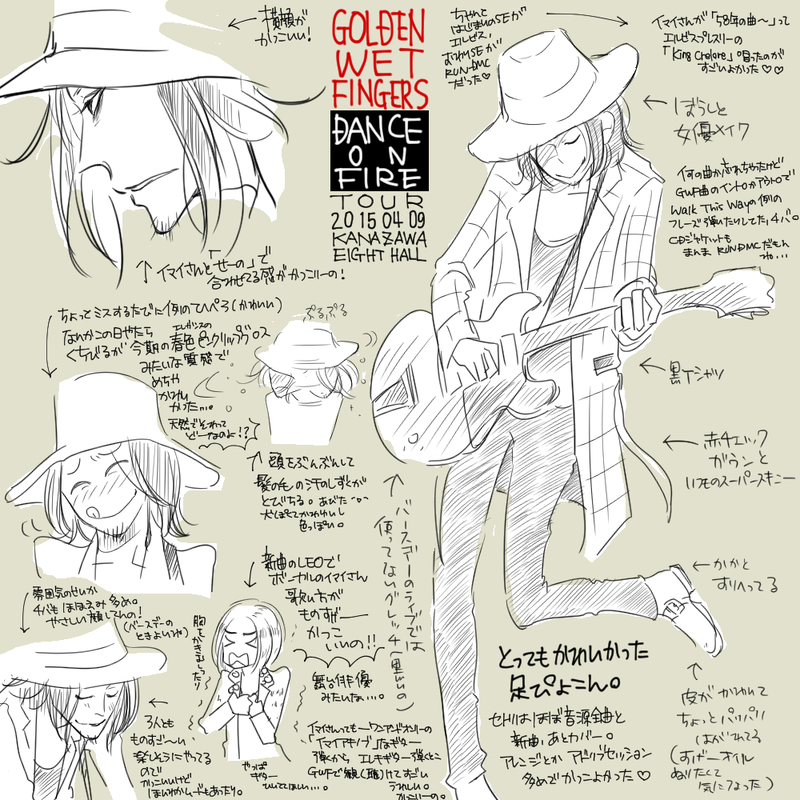 横顔が
かっこいい!
GOLDEN
WET
FINGERS
DANCE
ON
FIRE
TOUR
2015 04 09
KANAZAWA
EIGHT HALL
ちゃんと
はじまりのSEが
エルビス、
おわりSEが
RUN-DMC
だった♡
イマイさんが「58年の曲〜」って
エルビスプレスリーの
「King Creole」唄ったのが
すごいよかった♡♡
← ぼうしと
女優メイク
何の曲か忘れちゃったけど
GWF曲のイントロかアウトロで
Walk This Wayの例の
フレーズ弾いたりしてた、チバ。
CDジャケットも
まんま RUN DMCだもん
ね...
↑ イマイさんと「せーの」で
合わせてる感がかっこいーの!
ちょっとミスするたびに例のてへぺろ(かわいい)
なんかこの日やたら
くちびるが今期の春色ピンクリップグロス
みたいな質感で
めちゃ
かわい
かった...。
天然でそれって
どーなのよ!?
ぷるぷる
↑ 頭をぶんぶんして
髪の毛の汗のしずくが
とびちる。あびた
犬っぽくてかわいいし
色っぽい。
← 黒Tシャツ
← 赤チェック
ガウンと
いつものスーパースキニー
← バースデーのライブでは
使ってないグレッチ(黒いの)
新曲のLEOで
ボーカルのイマイさん
歌い方が
ものすげー
かっこ
いいの!!
舞台俳優
みたいな...。
雰囲気のせいか
チバもほほえみ多め。
やさしい顔してんの!
(バースデーの
ときよりね)
胸をかきむしったり
← 3人とも
ものすご〜い
楽しそうにやってる
ので
かっこいいけど
ほんわかムードもあったり。
やっぱ
ギター
ひいてほしい...。
イマイさんっても
「イマイアキノブ」なギター
弾くから、エレキギター弾くとこ
うれしい。
← かかと
すりへってる
とってもかわいかった
足ぴょこん。
セトリはほぼ音源全曲と
新曲、あとカバー。
アレンジとか アドリブセッション
多めでかっこよかった♡
↑
皮がかわいて
ちょっとパリパリ
はがれてる
(すげーオイル
ぬりたくて
気になった)